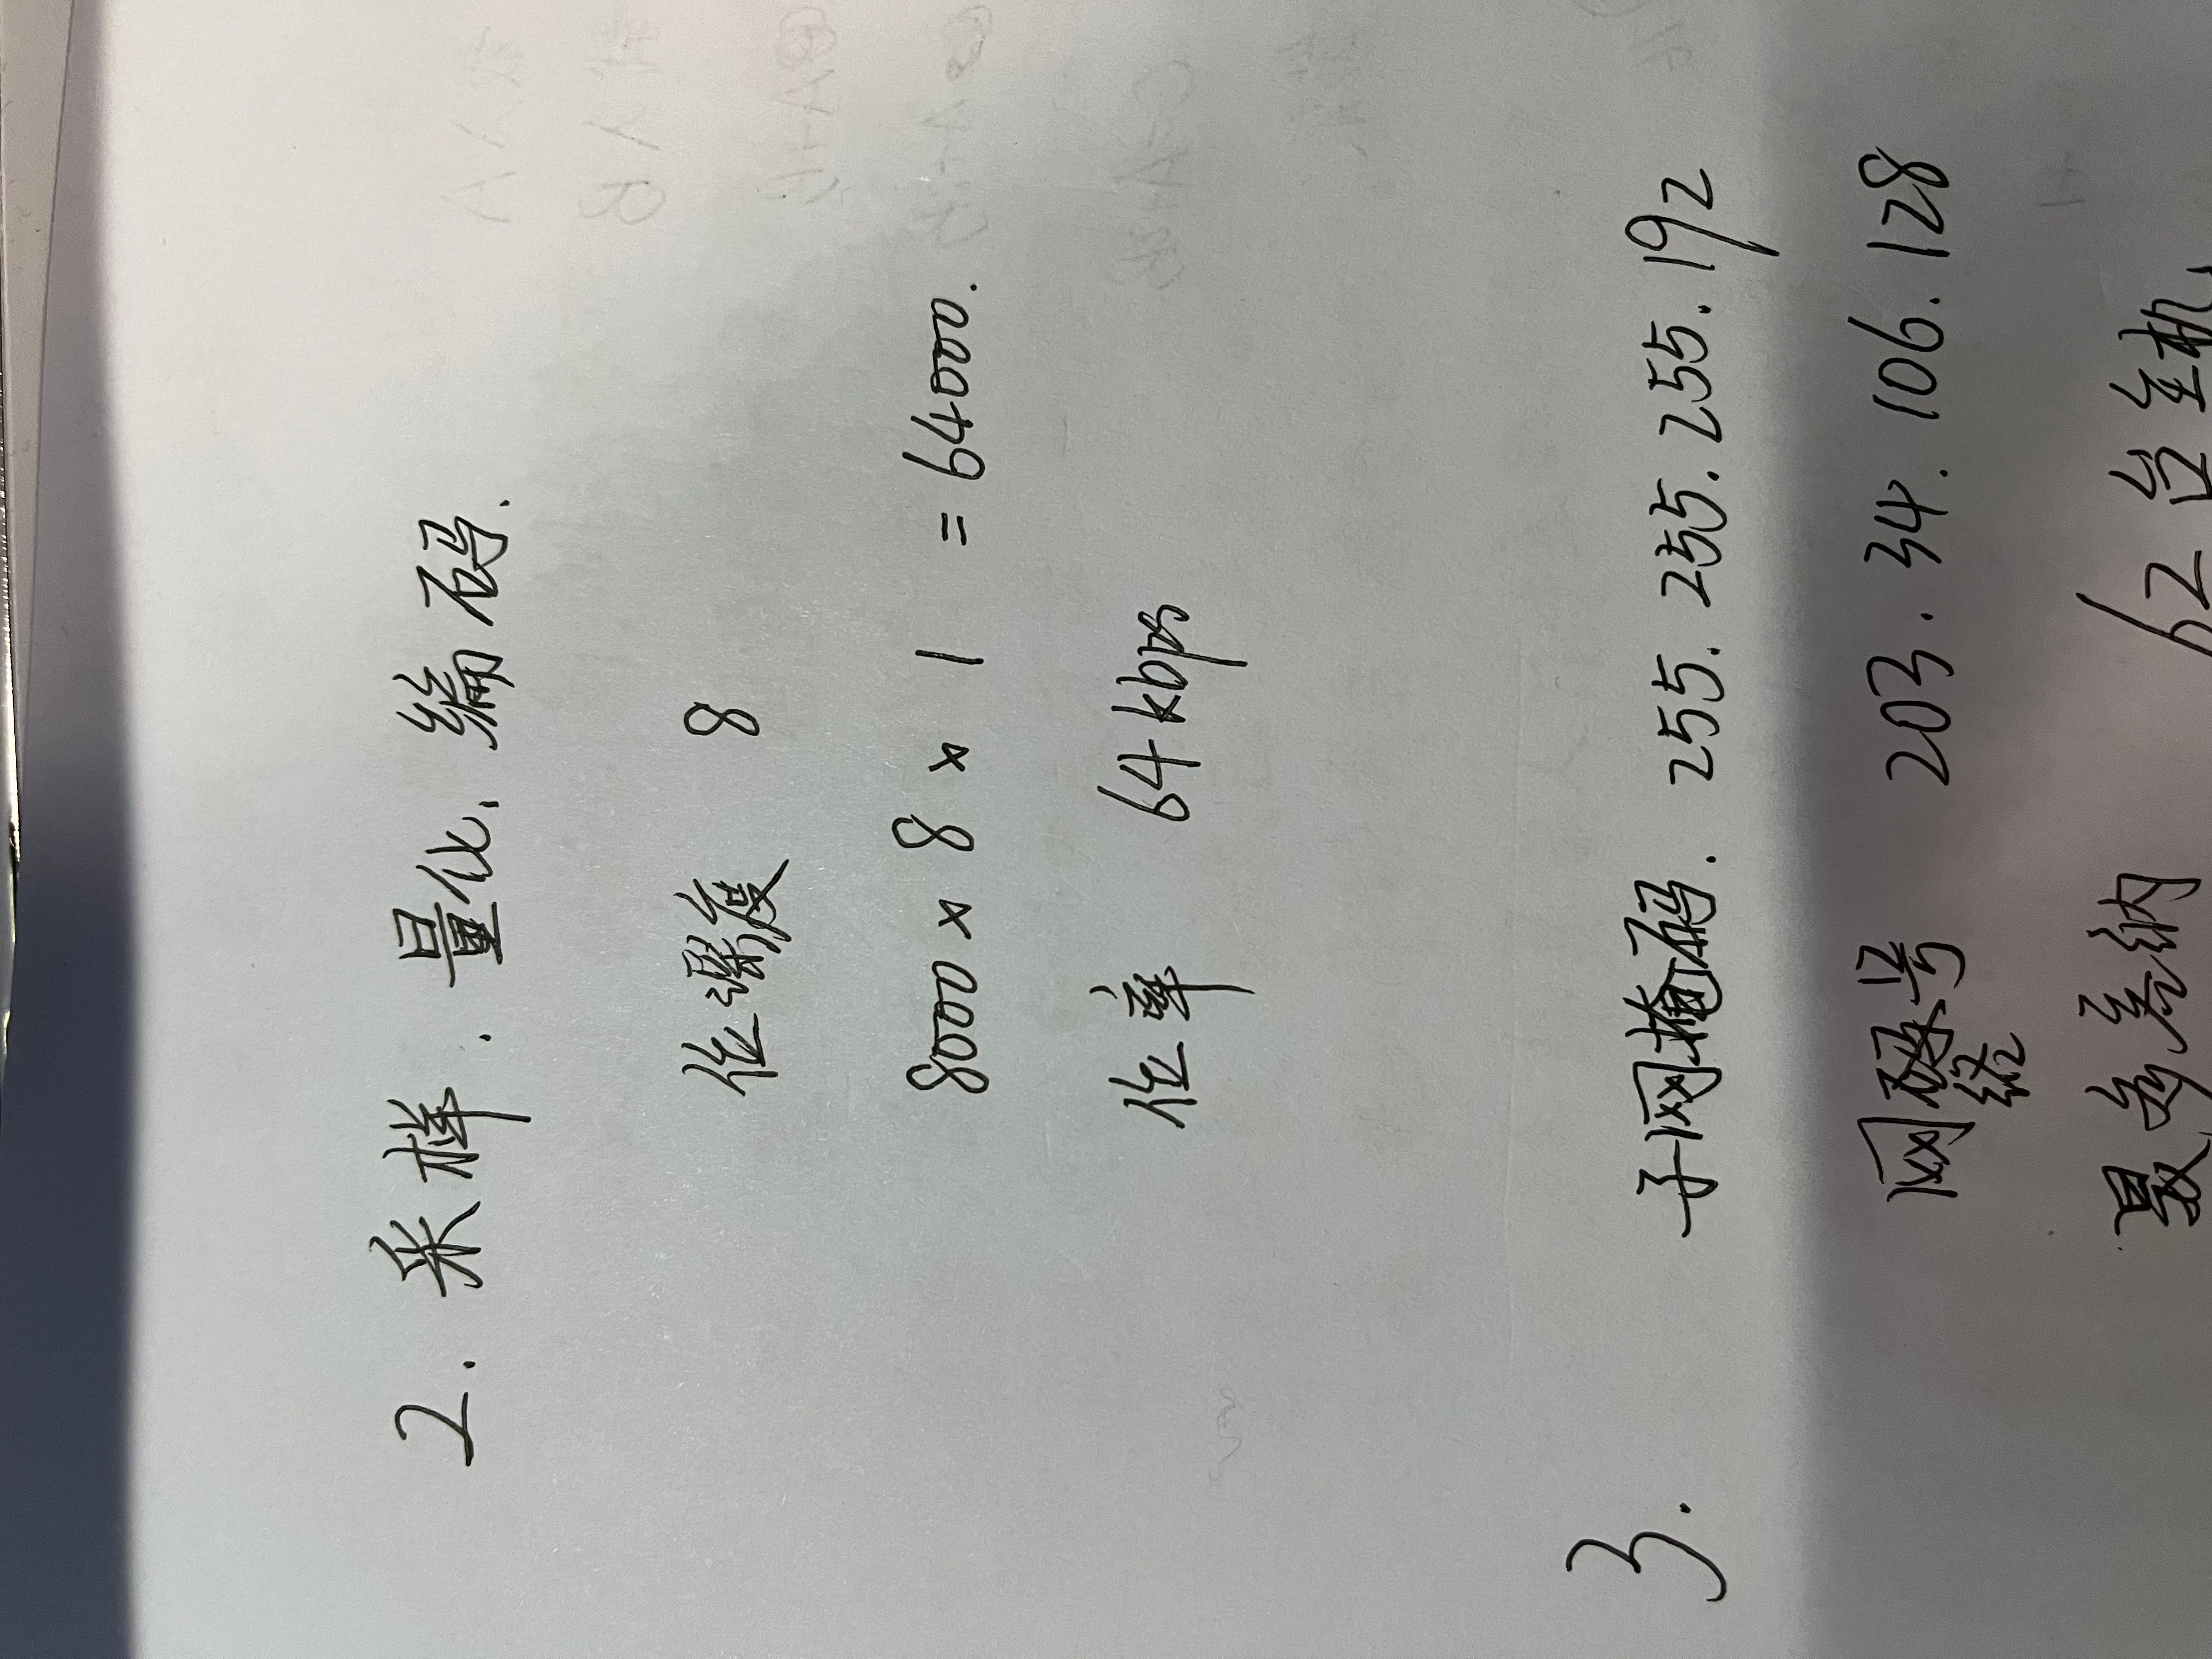 2. 采样. 量化. 编码.
位深度 8
8000 × 8 × 1 = 64000.
位率 64kbps
3. 子网掩码. 255.255.255.192
网络号 203.34.106.128
最多容纳 62台主机.